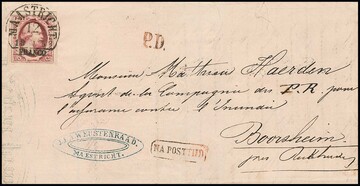 MAASTRICHT
FRANCO
P.D.
Monsieur Mathieu Haerden
Agent de la Compagnie des P.R. pour
l'assurance contre l'Incendie
Boorsheim
près
RUSTENRAAD
MAESTRICHT.
NA POSTTIJD